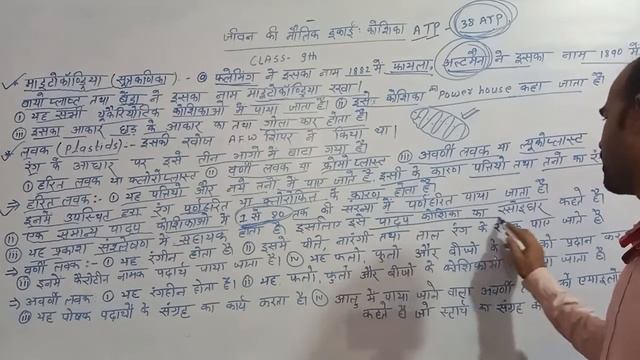 जीवन की मौलिक इकाई: कोशिका ATP - 38 ATP
CLASS- 9th
माइटोकॉन्ड्रिया (सूत्रकणिका) :- फ्लेमिंग ने इसका नाम 1882 में फायला, अल्टमैन ने इसका नाम 1890 में
बायोप्लास्ट तथा बेंडा ने इसका नाम माइटोकॉन्ड्रिया रखा।
① यह सभी यूकैरियोटिक कोशिकाओं में पाया जाता है। ⑪ इसे कोशिका Power house कहा जाता है।
⑩ इसका आकार छड़ के आकार का तथा गोला कार होता है।
लवक (Plastids):- इसकी खोज A F W शिंपर ने किया था।
रंग के आधार पर इसे तीन भागों में बाटा गया है।
① हरित लवक या क्लोरोप्लास्ट ⑪ वर्णी लवक या क्रोमोप्लास्ट ⑩ अवर्णी लवक या ल्यूकोप्लास्ट
हरित लवक:- ① यह पत्तियों और नये तनों में पाए जाते हैं इसी के कारण पत्तियों तथा तनों का रंग
इनमें उपस्थित हरा रंग पर्णहरित या क्लोरोफिल के कारण होता है।
⑪ एक सामान्य पादप कोशिकाओं में 1 से 80 तक की संख्या में पर्णहरित पाया जाता है।
⑩ यह प्रकाश संश्लेषण में सहायक होता है इसलिए इसे पादप कोशिका का रसोइघर कहते है।
वर्णी लवक:- ① यह रंगीन होता है। ⑪ इसमें पीले, नारंगी तथा लाल रंग के पाए जाते है
⑩ इनमें कैरोटीन नामक पदार्थ पाया जाता है। ⑩ यह फलों, फूलों और बीजों के को प्रदान कर
अवर्णी लवक:- ① यह रंगहीन होता है। ⑪ यह फलों, फूलों और बीजों के कोशिकाओं में पाया जाता है।
⑩ यह पोषक पदार्थों के संग्रह का कार्य करता है। आलू में पाया जाने वाला अवर्णी को एमाइलो
कहते है जो स्टार्च का संग्रह को